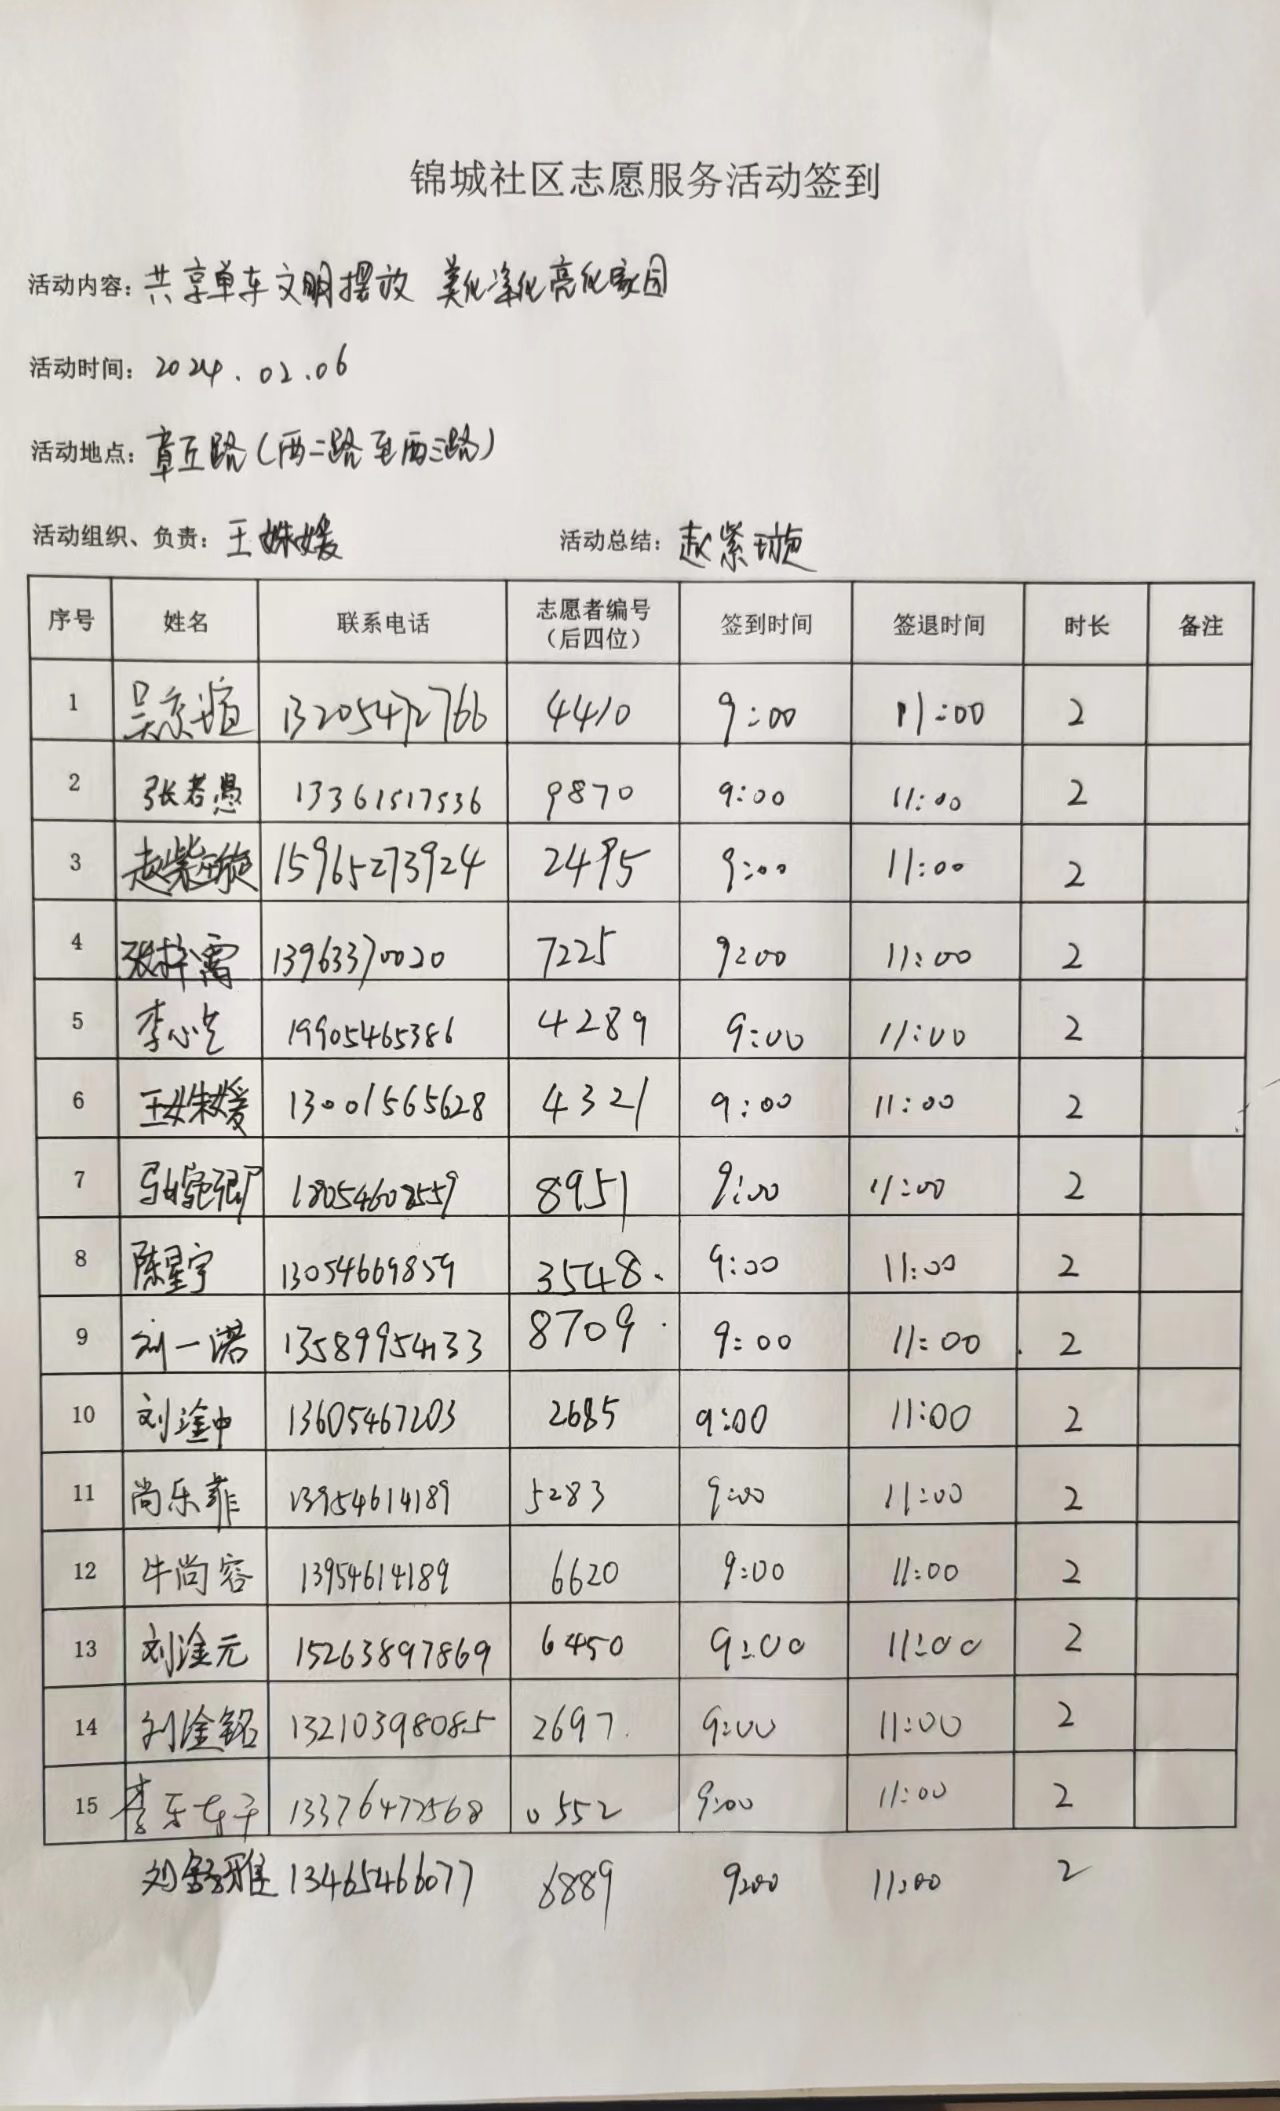 锦城社区志愿服务活动签到
活动内容: 共享单车文明摆放 美化净化亮化家园
活动时间: 2024.02.06
活动地点: 章丘路(西二路至西三路)
活动组织、负责: 王姝媛 活动总结: 赵紫璇
序号 姓名 联系电话 志愿者编号(后四位) 签到时间 签退时间 时长 备注
1 13205472766 4410 9:00 11:00 2
2 张若愚 13361517536 9870 9:00 11:00 2
3 赵紫璇 15965273924 2495 9:00 11:00 2
4 张梓霈 13963370020 7225 9:00 11:00 2
5 李心 19905465386 4289 9:00 11:00 2
6 王姝媛 13001565628 4321 9:00 11:00 2
7 马婉卿 8951 9:00 11:00 2
8 陈星宇 13054669859 3548. 9:00 11:00 2
9 刘一诺 13589954133 8709 9:00 11:00 2
10 刘淦中 13605467203 2685 9:00 11:00 2
11 尚乐菲 13954614189 5283 9:00 11:00 2
12 牛尚容 13954614189 6620 9:00 11:00 2
13 刘淦元 15263897869 6450 9:00 11:00 2
14 刘淦铭 13210398085 2697. 9:00 11:00 2
15 李乐 13376472568 0552 9:00 11:00 2
刘舒雅 13465466077 6889 9:00 11:00 2